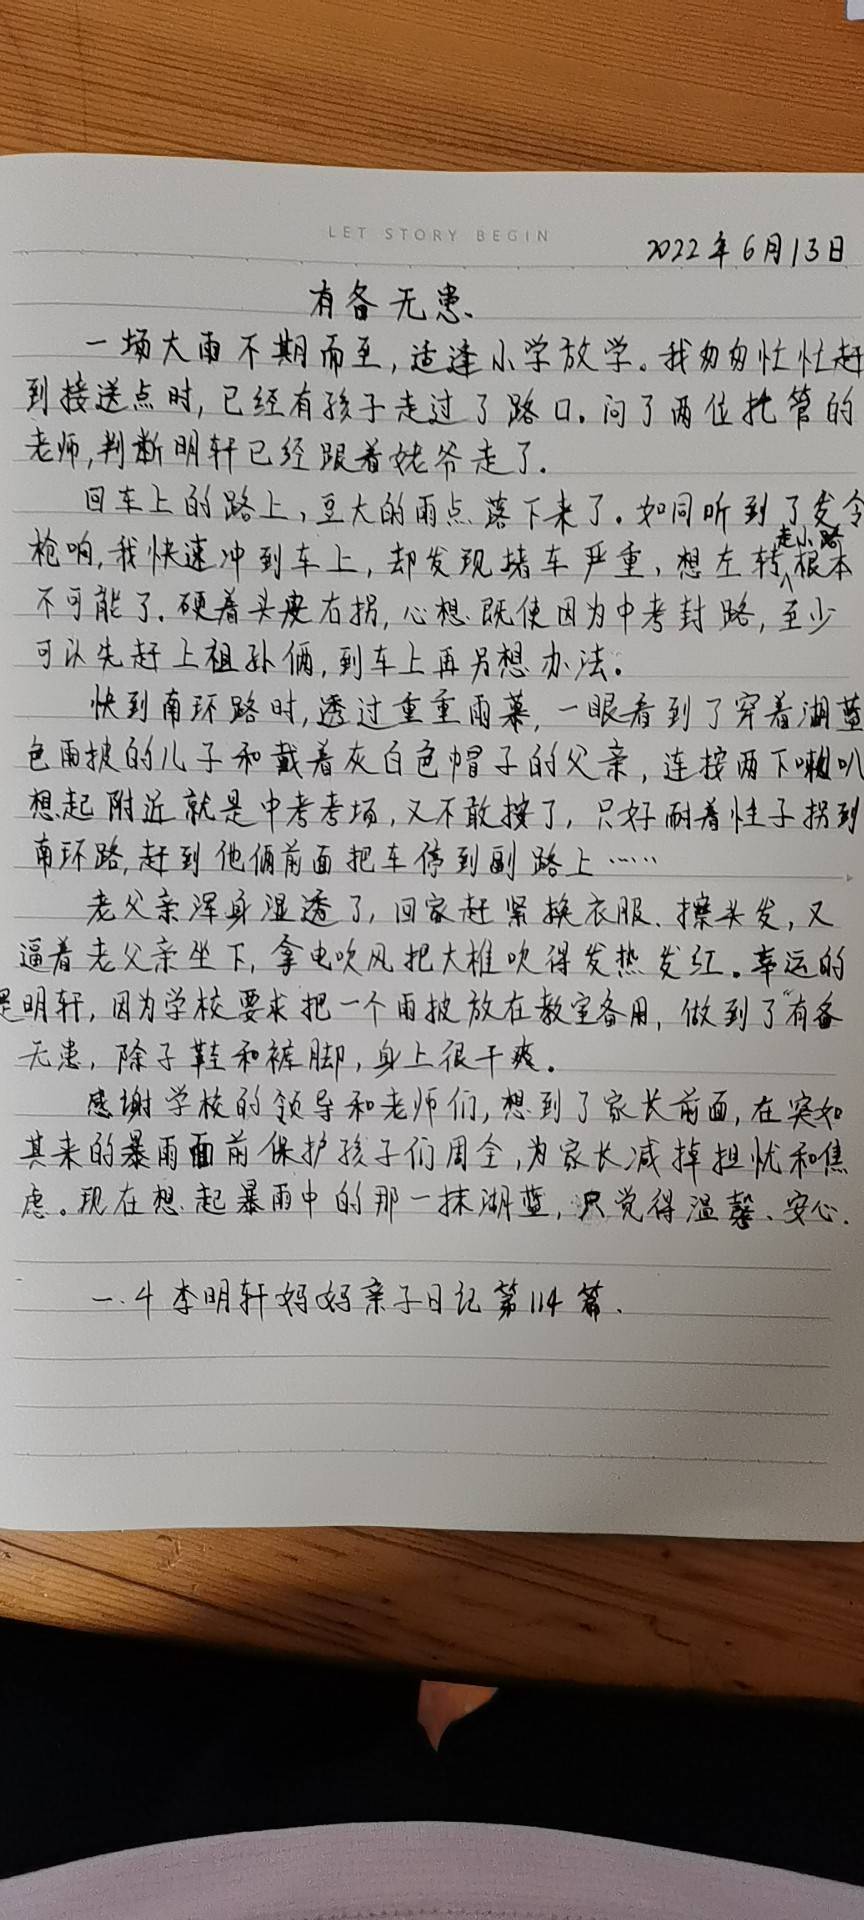 LET STORY BEGIN
2022年6月13日
有备无患
一场大雨不期而至，适逢小学放学。我匆匆忙忙赶
到接送点时，已经有孩子走过了路口。问了两位托管的
老师，判断明轩已经跟着姥爷走了。
回车上的路上，豆大的雨点落下来了。如同听到了发令
枪响，我快速冲到车上，却发现堵车严重，想左转走小路根本
不可能了。硬着头皮右拐，心想既使因为中考封路，至少
可以先赶上祖孙俩，到车上再另想办法。
快到南环路时，透过重重雨幕，一眼看到了穿着湖蓝
色雨披的儿子和戴着灰白色帽子的父亲，连按两下喇叭
想起附近就是中考考场，又不敢按了，只好耐着性子拐到
南环路，赶到他俩前面把车停到副路上……
老父亲浑身湿透了，回家赶紧换衣服、擦头发，又
逼着老父亲坐下，拿电吹风把大椎吹得发热发红。幸运的
是明轩，因为学校要求把一个雨披放在教室备用，做到了“有备
无患，除了鞋和裤脚，身上很干爽。
感谢学校的领导和老师们，想到了家长前面，在突如
其来的暴雨面前保护孩子们周全，为家长减掉担忧和焦
虑。现在想起暴雨中的那一抹湖蓝，只觉得温馨、安心.
一.4 李明轩妈妈亲子日记第114篇.